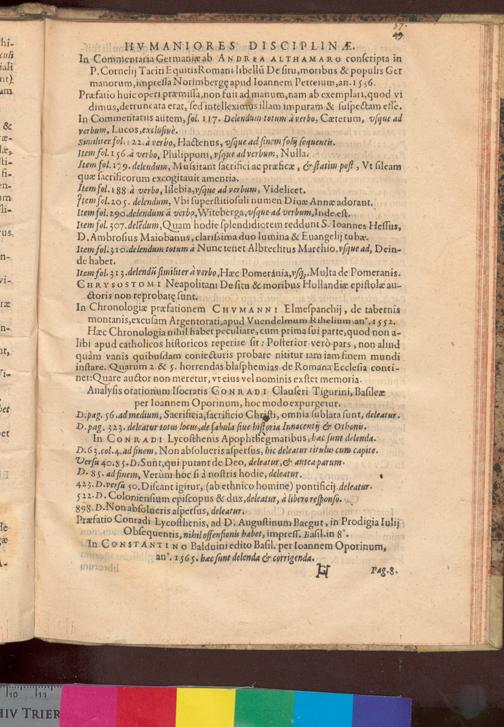 37.
49
HVMANIORES DISCIPLINÆ.
In Commentaria Germaniæ ab ANDREA ALTHAMARO conscripta in
P. Cornelij Taciti Equitis Romani libellũ De situ, moribus & populis Ger
manorum, impressa Norimbergę apud Ioannem Petreium, an. 1536.
Præfatio huic operi præmissa, non fuit ad manum, nam ab exemplari, quod vi
dimus, detruncata erat, sed intelleximus illam impuram & suspectam esse.
In Commentariis autem, fol. 117. Delendum totum à verbo, Cæterum, vsque ad
verbum, Lucos, exclusiuè.
Similiter fol. 122. à verbo, Hactenus, vsque ad finem folij sequentis.
Item fol. 156. à verbo, Philippum, vsque ad verbum, Nulla.
Item fol. 179. delendum, Mussitant sacrifici ac præficæ, & statim post, Vt sileam
quæ sacrificorum excogitauit amentia.
Item fol. 188 à verbo, Islebia, vsque ad verbum, Videlicet.
Item fol. 205. delendum, Vbi superstitiosuli numen Diuæ Annæ adorant.
Item fol. 290. delendum à verbo, Witeberga, vsque ad verbum, Inde est.
Item fol. 307. delẽdum, Quam hodie splendidiorem reddunt S. Ioannes Hessus,
D. Ambrosius Maiobanus, clarissima duo lumina & Euangelij tubæ.
Item fol. 310. delendum totum à Nunc tenet Albrechtus Marchio, vsque ad, Dein-
de habet.
Item fol. 313. delendũ similiter à verbo, Hæc Pomerania, vsq; Multa de Pomeranis.
CHRYSOSTOMI Neapolitani De situ & moribus Hollandiæ epistolæ au-
ctoris non reprobatę sunt.
In Chronologiæ præfationem CHVMANNI Elmespanchij, de tabernis
montanis, excusam Argentorati, apud Vuendelinum Rihelium an°. 1552.
Hæc Chronologia nihil habet peculiare, cum prima sui parte, quod non a-
libi apud catholicos historicos reperire sit: Posterior verò pars, non aliud
quàm vanis quibusdam coniecturis probare nititur iam iam finem mundi
instare. Quarum 2. & 5. horrendas blasphemias de Romana Ecclesia conti-
net: Quare auctor non meretur, vt eius vel nominis exstet memoria.
Analysis orationum Isocratis CONRADI Clauseri Tigurini, Basileæ
per Ioannem Oporinum, hoc modo expurgetur.
D. pag. 56. ad medium, Sacrificia, sacrificio Christi, omnia sublata sunt, deleatur.
D. pag. 323. deleatur totus locus, de fabula siue historia Innocentij & Othonis.
In CONRADI Lycosthenis Apophthegmatibus, hæc sunt delenda.
D. 63. col. 4. ad finem, Non absolueris aspersus, hic deleatur titulus cum capite.
Versu 40. 85. D. Sunt, qui putant de Deo, deleatur, & antea parum.
D. 85. ad finem, Verùm hoc fi à nostris hodie, deleatur.
423. D. versu 50. Discant igitur, (ab ethnico homine) pontificij. deleatur.
522. D. Coloniensium episcopus & dux, deleatur, à libero responso.
898. D. Non absolueris aspersus, deleatur.
Præfatio Conradi Lycosthenis, ad D. Augustinum Baegut, in Prodigia Iulij
Obsequentis, nihil offensionis habet, impress. Basil. in 8°.
In CONSTANTINO Balduini edito Basil. per Ioannem Oporinum,
an°. 1565. hæc sunt delenda & corrigenda.
H
Pag. 8.
10
11
HIV TRIER